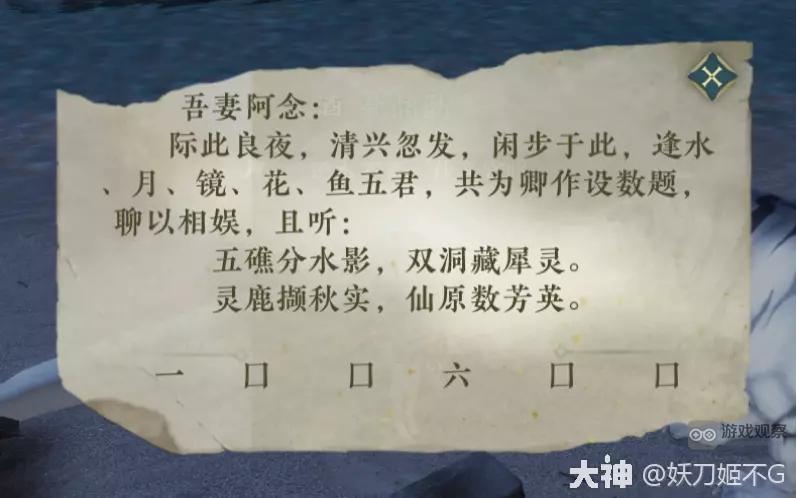 吾妻阿念：
际此良夜，清兴忽发，闲步于此，逢水
、月、镜、花、鱼五君，共为卿作设数题，
聊以相娱，且听：
五礁分水影，双洞藏犀灵。
灵鹿撷秋实，仙原数芳英。
一 口 口 六 口 口
游戏观察
大神 @妖刀姬不G